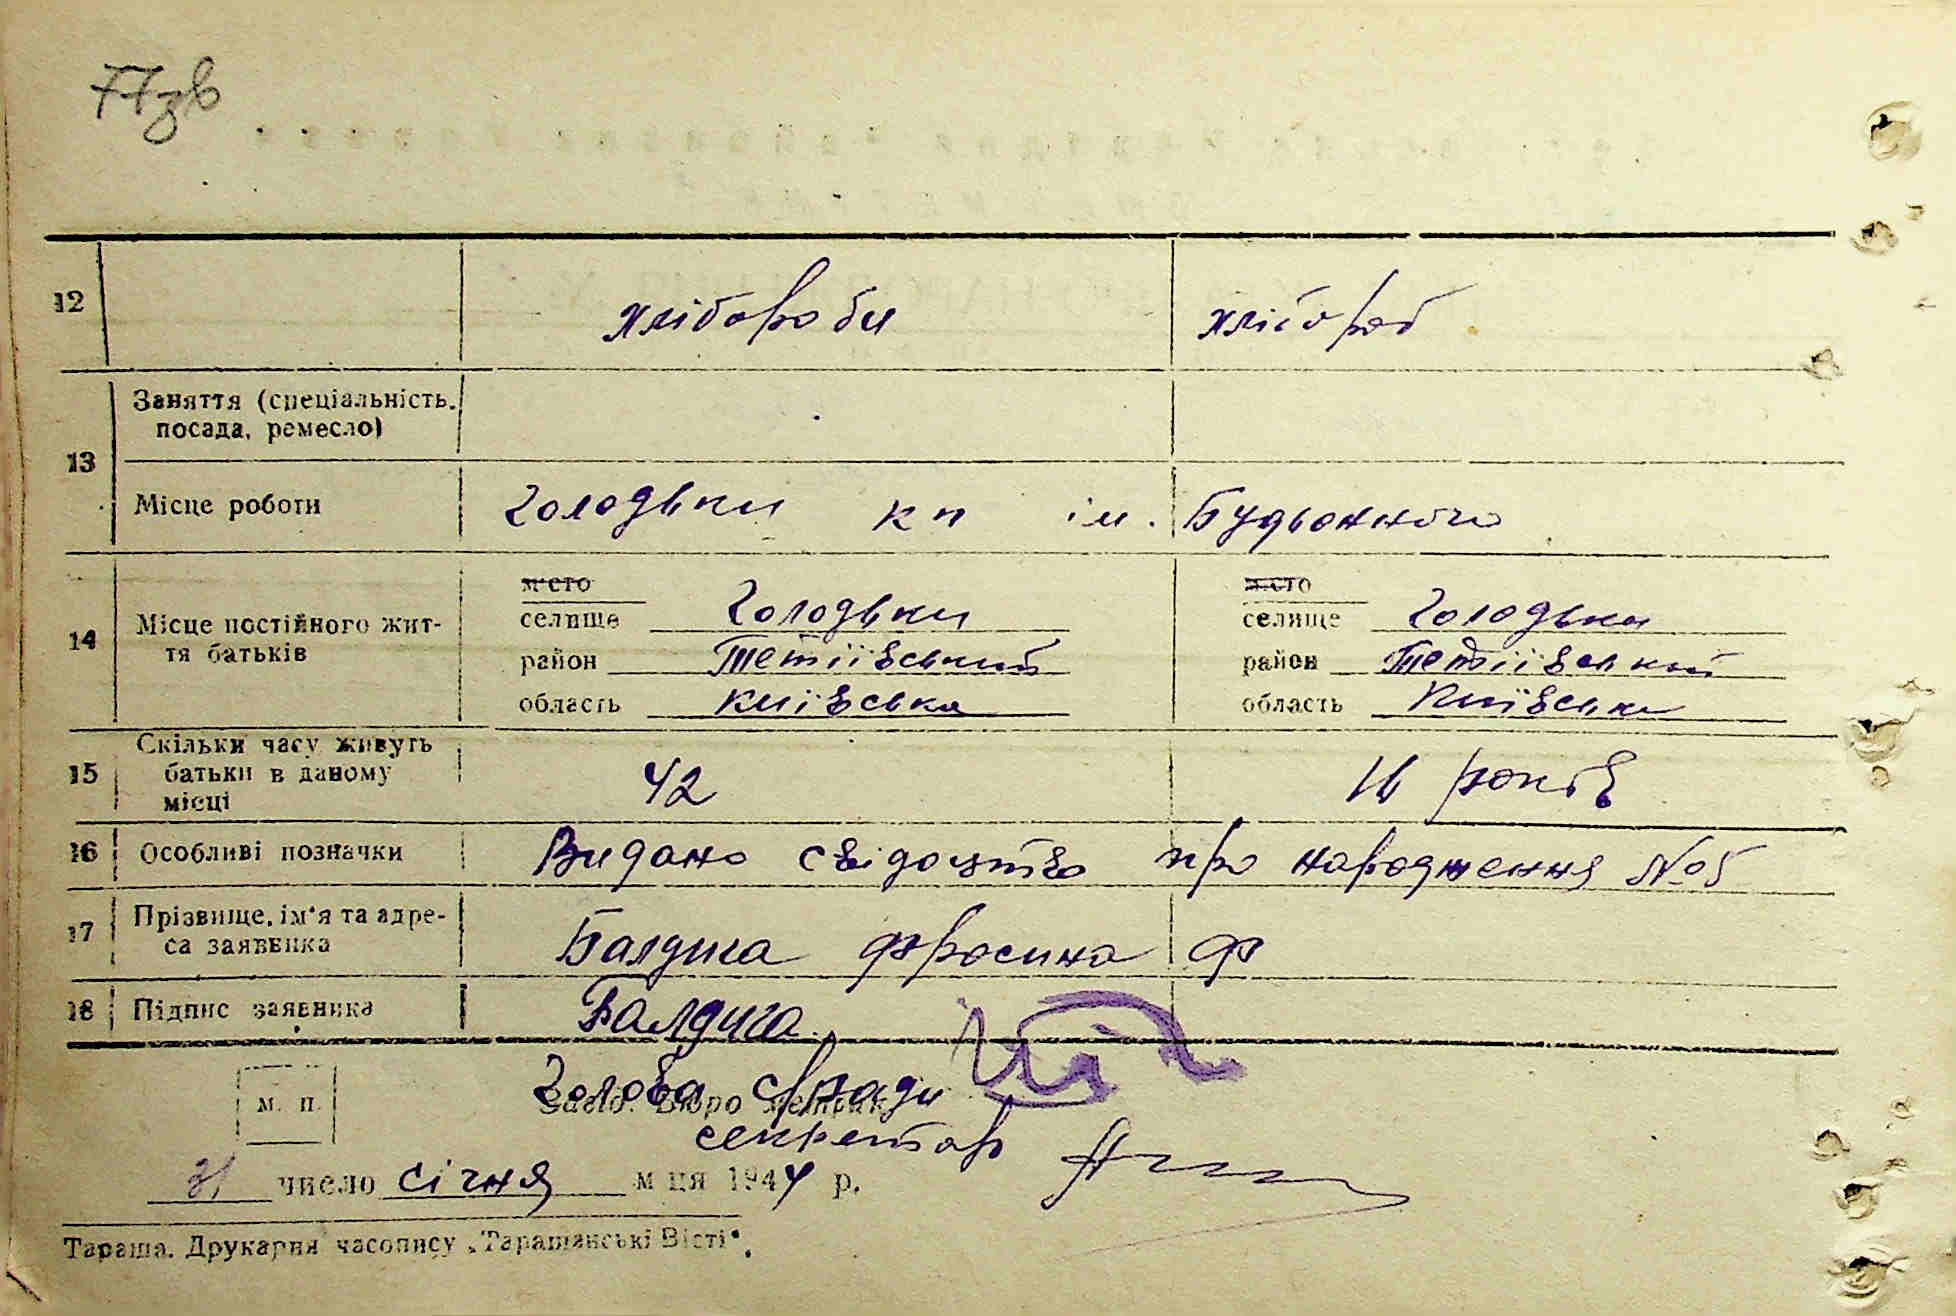 77зв
12 хлібороби хлібороб
Заняття (спеціальність, посада, ремесло)
13
Місце роботи Голодьки кп ім. Будьонного
місто місто
селище Голодьки селище Голодьки
14 Місце постійного життя батьків
район Тетіївський район Тетіївський
область Київська область Київська
15 Скільки часу живуть батьки в даному місці 42 16 років
16 Особливі позначки Видано свідоцтво про народження №5
17 Прізвище, ім'я та адреса заявника Балдига Фросина Ф
18 Підпис заявника Балдига
Голова с/ради
м. п. Бюро
секретар
31 число січня м ця 1944 р.
Тараща. Друкарня часопису „Таращанські Вісті“.